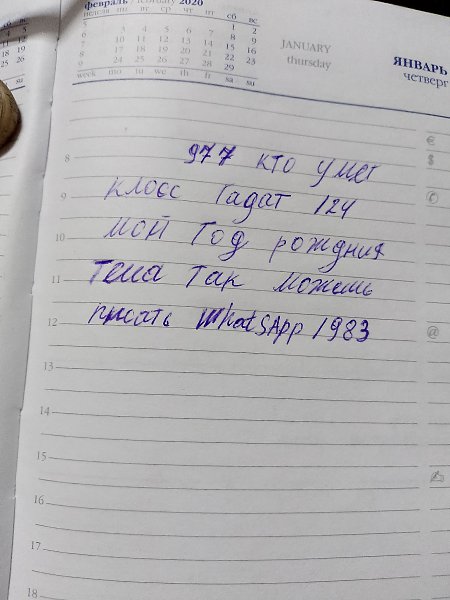 февраль / february 2020
недели пн вт ср чт пт сб вс
1 2
6 3 4 5 6 7 8 9
7 10 11 12 13 14 15 16
8 17 18 19 20 21 22 23
9 24 25 26 27 28 29
week mo tu we th fr sa su
JANUARY
thursday
ЯНВАРЬ
четверг
€
$
8 977 кто умет
9 класс Гадат 124
10 мой Год рождния
11 тема так можешь
12 писать WhatsApp 1983
@
13
14
15
16
17
18